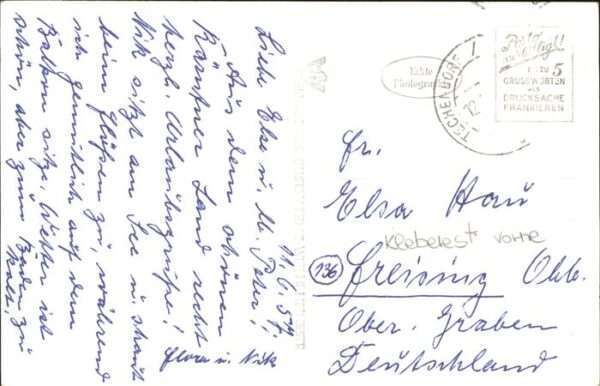 11. 6. 57.
Liebe Else u. lb. Peter!
Aus dem schönen
Kärntner Land recht
herzl. Urlaubsgrüße!
Nik sitzt am See u. schaut
beim Fischen zu, während
ich gemütlich auf dem
Balkon sitze. Wetter ist
schön, aber zum Baden
kalt.
Flora u. Nik
Echte
Photographie
TSCHENDORF
12.
Postkarte
bis zu 5
GRUSSWORTEN
ALS
DRUCKSACHE
FRANKIEREN
Fr.
Elsa Hau
Kleberest vorne
(13b) Freising Obb.
Ober. Graben
Deutschland